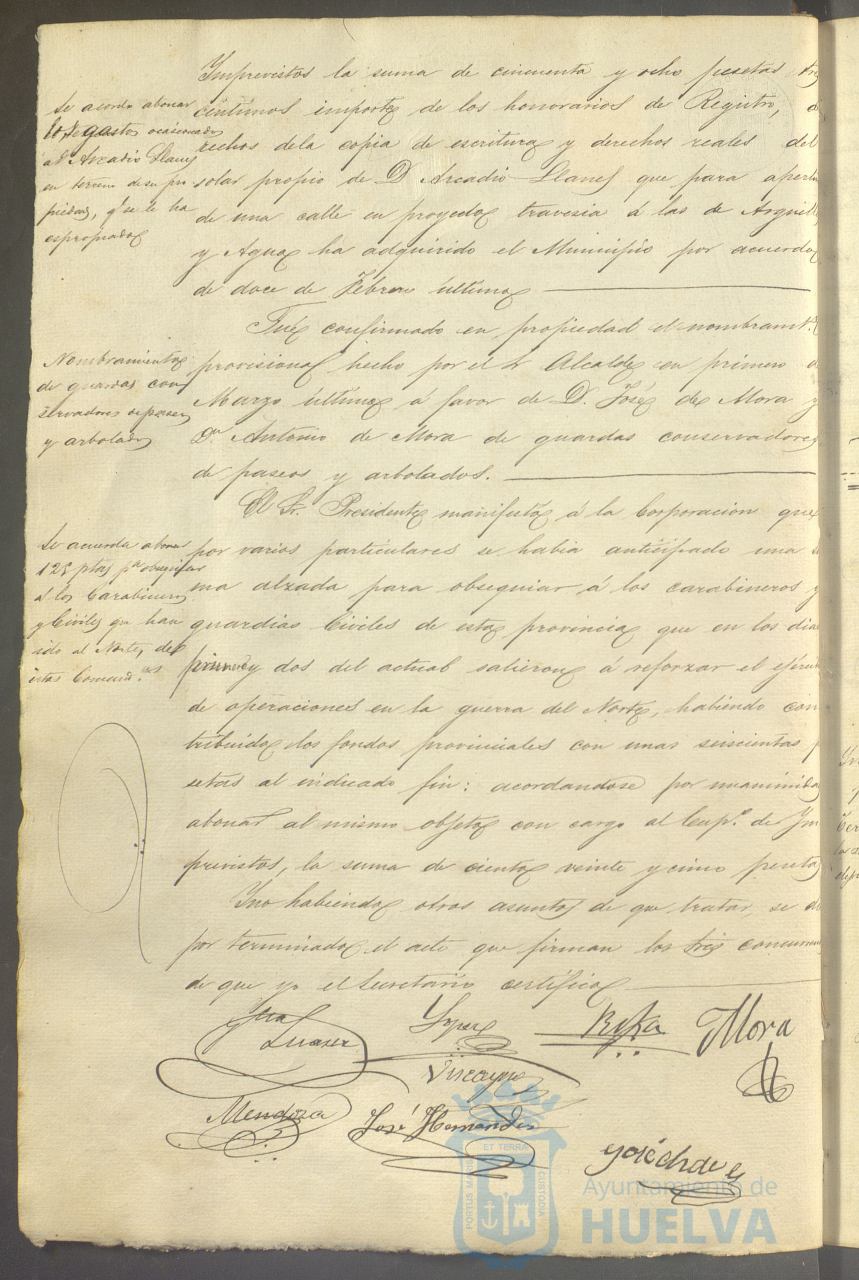 Imprevistos la suma de cincuenta y ocho pesetas
céntimos importe de los honorarios de Registro,
rechos dela copia de escritura y derechos reales del
solar propio de D Arcadio Llanes que para
de una calle en proyecto travesia á las de
y Agua ha adquirido el Municipio por acuerdo
de doce de Febrero último
Se acordó abonar
los gastos ocasionados
a D Arcadio Llanes
en terreno de su pro
piedad, q.e se le ha
espropiado
Fué confirmado en propiedad el nombramt.o
provisional hecho por el Sr Alcalde con primero
Marzo último á favor de D. José de Mora y
D.n Antonio de Mora de guardas conservadores
de paseos y arbolados.
Nombramiento
de guardas con
servadores de paseos
y arbolado
El Sr. Presidente manifestó á la Corporacion que
por varios particulares se habia anticipado una
ma alzada para obsequiar á los carabineros y
guardias Civiles de esta provincia que en los dias
primero y dos del actual salieron á reforzar el
de operaciones en la guerra del Norte, habiendo con
tribuido los fondos provinciales con unas seiscientas
setas al indicado fin: acordandose por
abonar al mismo objeto con cargo al Cap.o de Im
previstos, la suma de ciento veinte y cinco pesetas
Se acuerda abonar
125 ptas p.a obsequiar
á los Carabineros
y Civiles que han
ido al Norte, de
estas Comand.as
Y no habiendo otros asuntos de que tratar, se
por terminado el acto que firman los Sres
de que yo el Secretario certifico
Suarez
Lopez
Mora
Vizcayno
Mendoza
José Hernandez
José
PORTUS MARIS ET TERRAE CUSTODIA
Ayuntamiento de
HUELVA